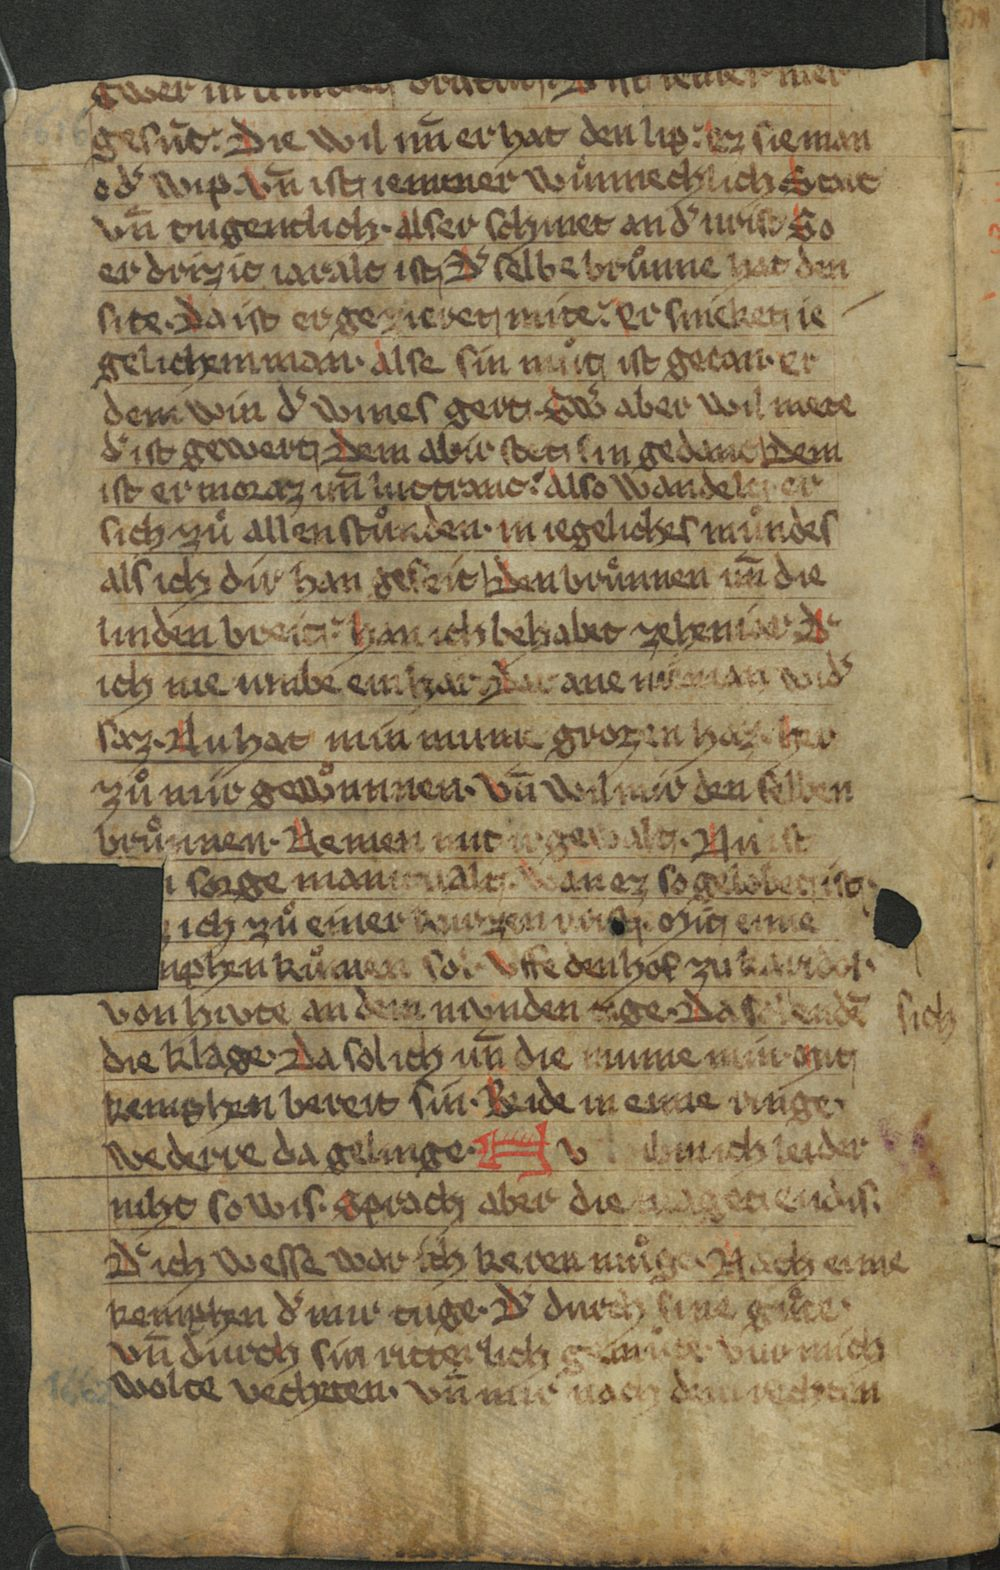 gesūt. Die wil uñ er hat den lip. Ez sie man
od͛ wip. Vñ ist iemmer wůnnechlich Stæt
vñ tugentlich. Als er schinet an d͛ vrist So
er drizic iar alt ist D͛ selbe brůnne hat den
site. Da ist er gezieret mite. Er smeket ie
gelichem man. Alse sin můt ist getan. er
dem win d͛ wines gert. Sw͛ aber wil mete
d͛ ist gewert Dem abir stet sin gedanc Dem
ist er moraz uñ luttranc. Also wandelet er
sich zů allen stůnden. in iegeliches můndes
als ich dir han geseit Den brůnnen uñ die
linden breit. han ich behabet zehen iar D͛
ich nie umbe ein har Dar ane nieman wid͛
saz. Nu hat min mume grozen haz. her
zů mir gewůnnen. Vñ wil mir den selben
brůnnen. Nemen mit ir gewalt. Nu ist
sorge manicvalt. Wan ez so gelobet ist
ich zů einer kurzen vrist. Mit eime
mphen kůmen sol. Vffe den hof zu karidol.
von hivte an dem nivnden tage. Da sol endē sich
die klage. Da sol ich uñ die mume min. Mit
kemphen bereit sin. Beide in eime ringe.
wederre da gelinge. v bin ich leider
niht so wis. Sprach aber die maget endis.
D͛ ich wesse war ich keren můge. Nach eime
kemphen d͛ mir tuge. D͛ durch sine gůte.
vñ durch sin ritterlich gemůte. vur mich
wolte vechten. vñ mir nach dem rechten